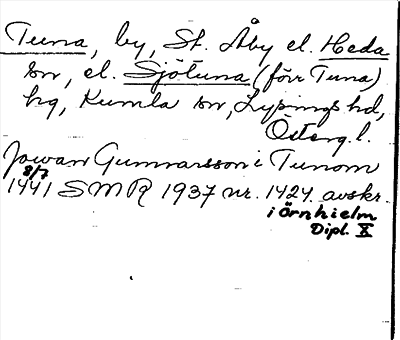 Tuna, by, St. Åby el. Heda
sn, el. Sjötuna (förr Tuna)
hg, Kumla sn, Lysings hd,
Österg. l.
Jowan Gunnarsson i Tunom
8/7
1441 SMR 1937 nr. 1424 avskr.
i Örnhielm
Dipl. X